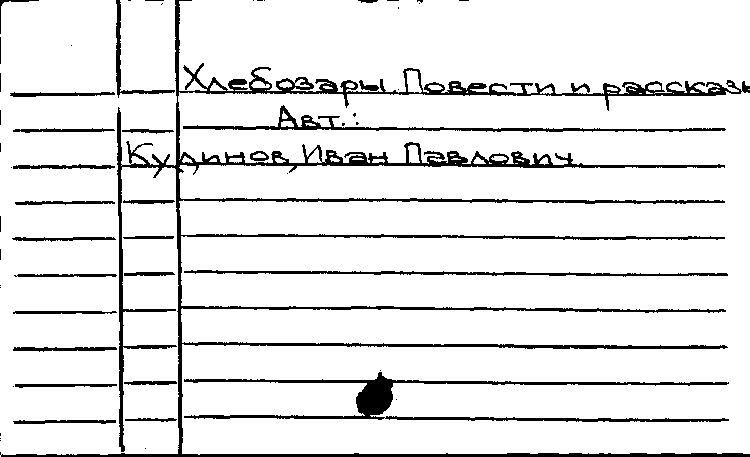 Хлебозары. Повести и рассказы
Авт.:
Кудинов, Иван Павлович.